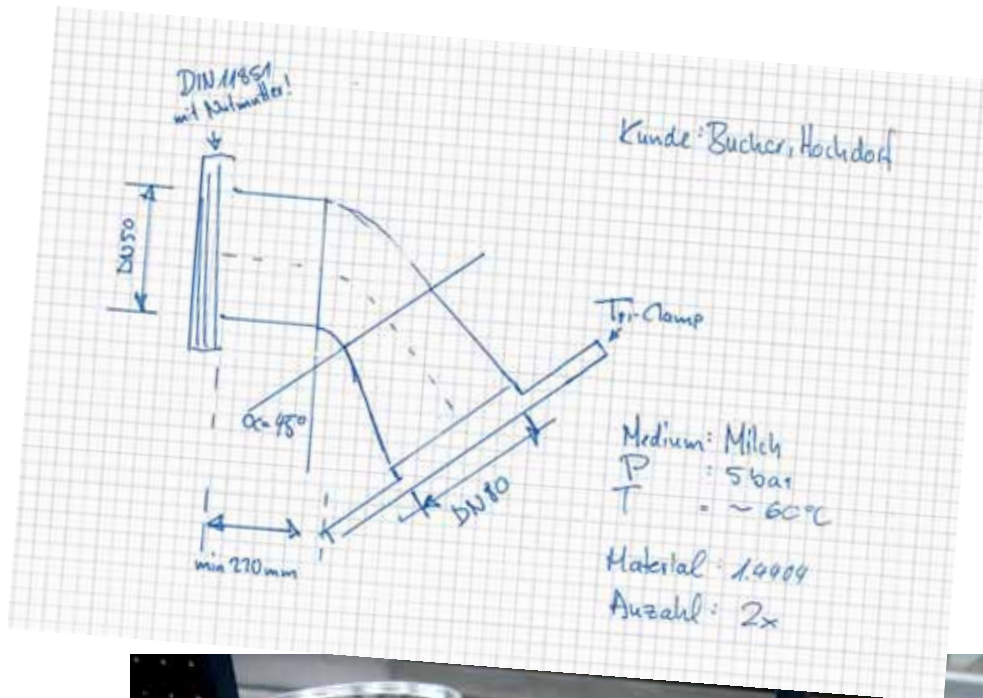 DIN 11851
mit Nutmutter!
Kunde: Bucher, Hochdorf
DN50
Tri-Clamp
α=45°
DN80
min 220mm
Medium: Milch
P : 5 bar
T = ~ 60°C
Material : 1.4404
Anzahl : 2x